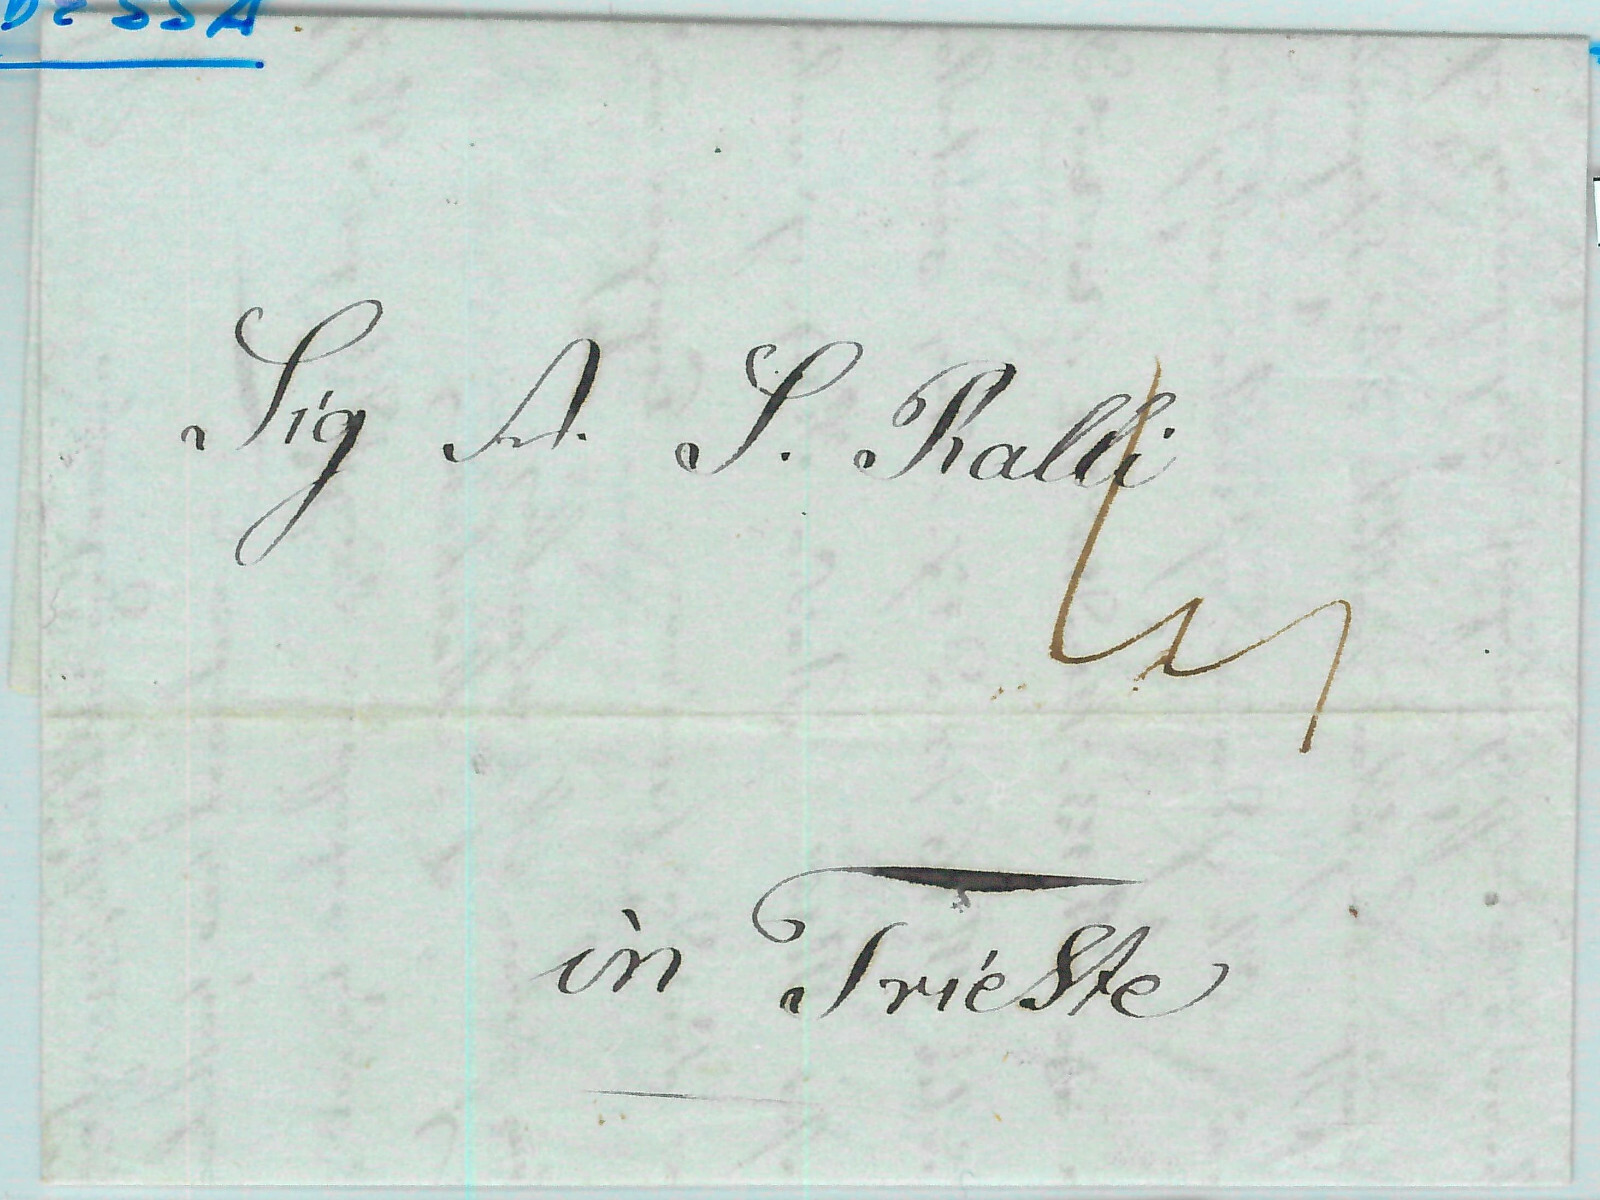 ODESSA
Sig A. S. Ralli
in Trieste